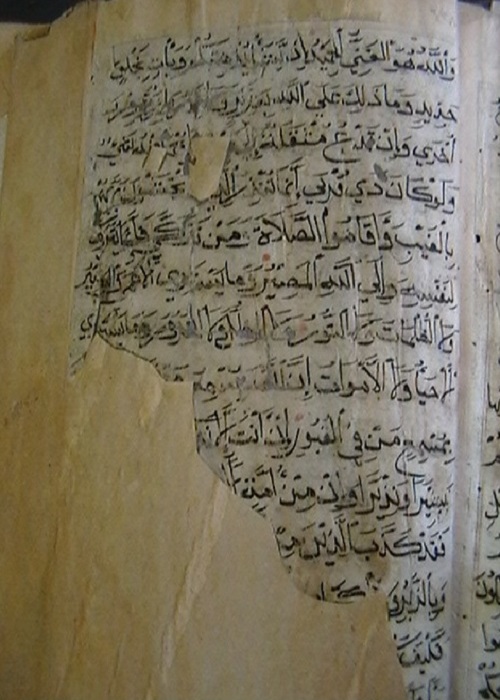 وَاللَّه هُوَ الغَنِيُّ الحَمِيدُ إِن يَشَأ يُذهِبكُم وَيَأتِ بِخَلقٍ
جَدِيدٍ وَمَا ذلِكَ عَلَى اللَّه بِعَزِيزٍ وَلَا تَزِرُ
أُخرَى وَإِن تَدعُ مُثقَلَةٌ إِلَى
وَلَوكَانَ ذِي قُربَى إِنَّمَا تُنذِرُ الَّذِينَ يَخشَونَ رَبَّهُم
بِالغَيبِ وَأَقَامُوا الصَّلَاةَ وَمَن تَزَكَّى فَإِنَّمَا يَتَزَكَّى
لِنَفسِهِ وَإِلَى اللَّهِ المَصِيرُ وَمَا يَستَوِي الأَعمَى وَالبَصِيرُ
وَلَا الظُّلُمَاتُ وَلَا النُّورُ وَلَا الظِّلُّ وَلَا الحَرُورُ وَمَا يَستَوِي
الأَحيَاءُ وَلَا الأَموَاتُ إِنَّ اللَّهَ يُسمِعُ مَن
بِمُسمِعٍ مَن فِي القُبُورِ إِن أَنتَ إِلَّا
بَشِيرًا وَنَذِيرًا وَإِن مِن أُمَّةٍ إِلَّا
فَقَد كَذَّبَ الَّذِينَ مِن
وَبِالزُّبُرِ وَ
فَكَيفَ